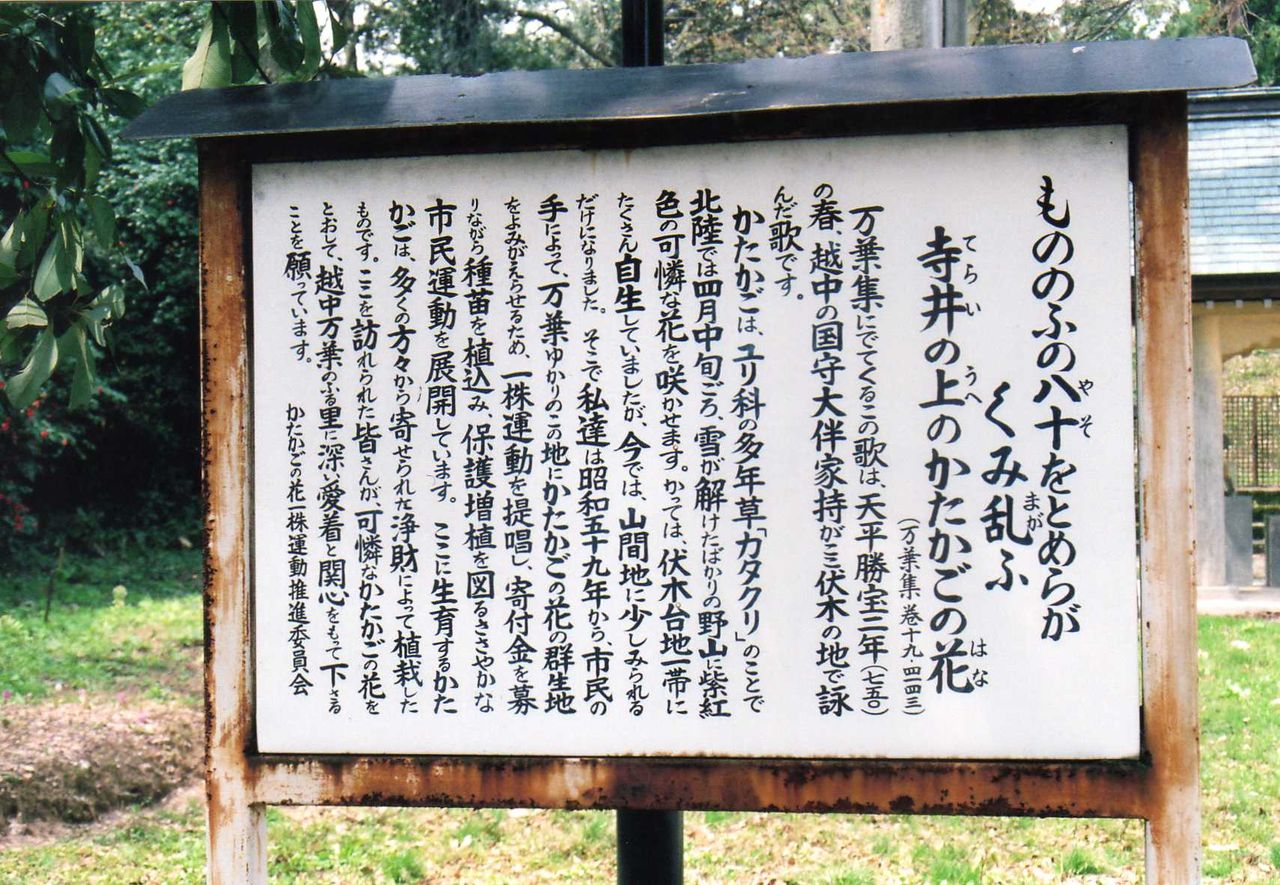 もののふの八十をとめらが
くみ乱ふ
寺井の上のかたかごの花
(万葉集 巻十九・四一四三)
万葉集にでてくるこの歌は、天平勝宝二年(七五〇)
の春、越中の国守大伴家持がこの伏木の地で詠
んだ歌です。
かたかごは、ユリ科の多年草「カタクリ」のことで
北陸では四月中旬ごろ、雪が解けたばかりの野山に紫紅
色の可憐な花を咲かせます。かっては、伏木台地一帯に
たくさん自生していましたが、今では、山間地に少しみられる
だけになりました。そこで私達は昭和五十九年から、市民の
手によって、万葉ゆかりのこの地にかたかごの花の群生地
をよみがえらせるため、一株運動を提唱し、寄付金を募
りながら種苗を植込み、保護増植を図るささやかな
市民運動を展開しています。ここに生育するかた
かごは、多くの方々から寄せられた浄財によって植栽した
ものです。ここを訪れられた皆さんが、可憐なかたかごの花を
とおして、越中万葉のふる里に深い愛着と関心をもって下さる
ことを願っています。
かたかごの花一株運動推進委員会